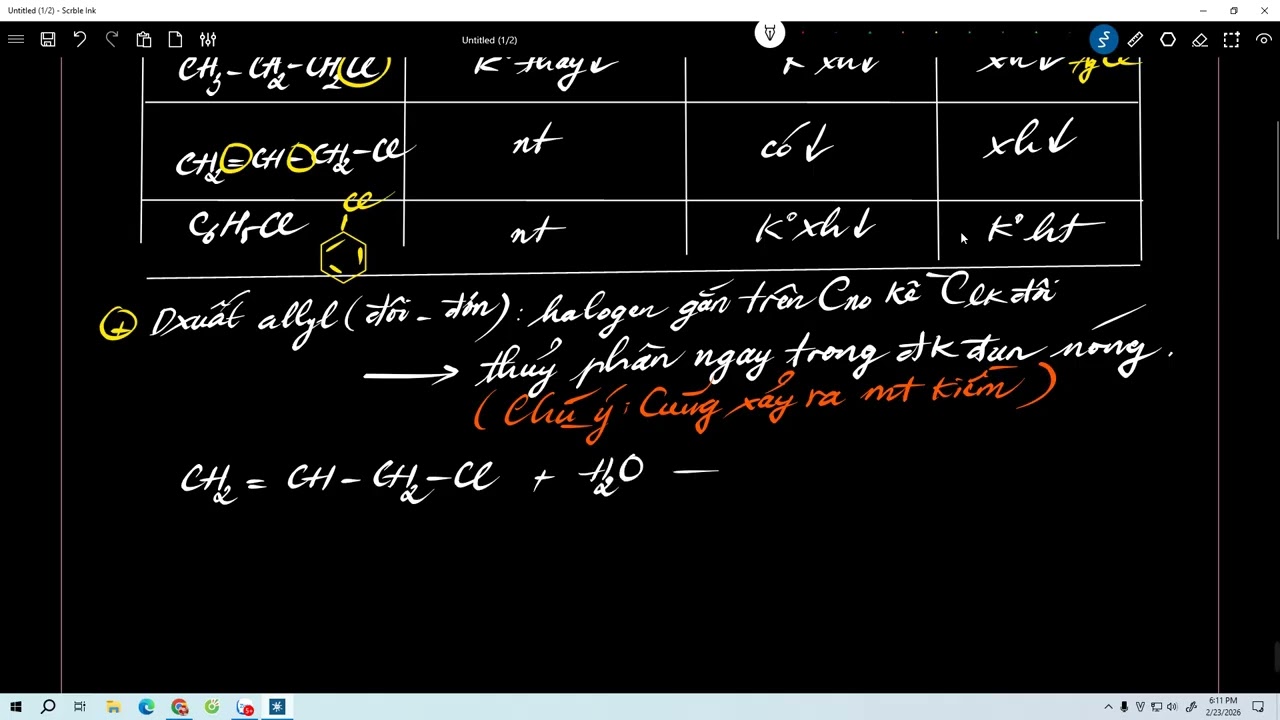 Untitled (1/2) - Scrble Ink
Untitled (1/2)
CH3 - CH2 - CH2 Cl K° thấy↓ K° xh↓ xh↓ AgCl
CH2 = CH - CH2 - Cl nt có ↓ xh↓
C6H5Cl Cl nt K° xh↓ K° ht
+ Dxuất allyl (đôi - đơn): halogen gắn trên Cno kề Clk đôi
→ thuỷ phân ngay trong đk đun nóng.
(Chú ý: Cũng xảy ra mt kiềm)
CH2 = CH - CH2 - Cl + H2O —
5+
6:11 PM
2/23/2026